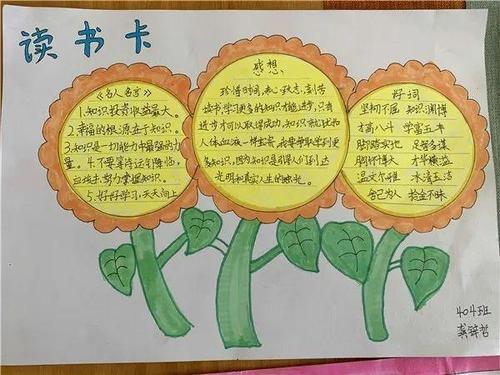 读书卡
《名人名言》
1.知识投资收益最大。
2.幸福的根源在于知识。
3.知识是一切能力中最强的力
量。4.不要等待运气降临。
应该去努力掌握知识。
5.好好学习，天天向上
感想
珍惜时间，
读书，学习更多的知识才能进步，只有
进步才可以取得成功，知识就犹如
人体血液一样宝贵，我要学取学到更
多知识，因为知识是引导人们到达
光明和真实人生的烛光。
好词
坚韧不屈 知识渊博
才高八斗 学富五车
脚踏实地 足智多谋
胸怀博大 才华横溢
温文尔雅 冰清玉洁
舍己为人 拾金不昧
404班
龚